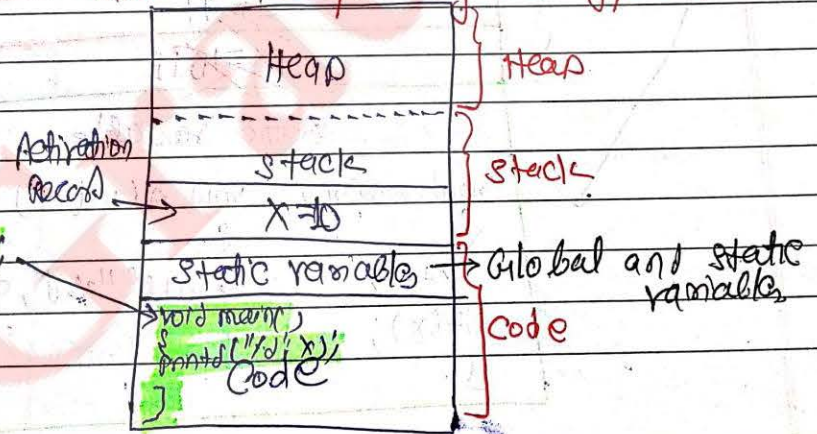 Heap
Heap
Activation
Record
stack
stack
X=10
static variables → Global and static
variables
void main,
{
printf("%d", X);
Code
}
code